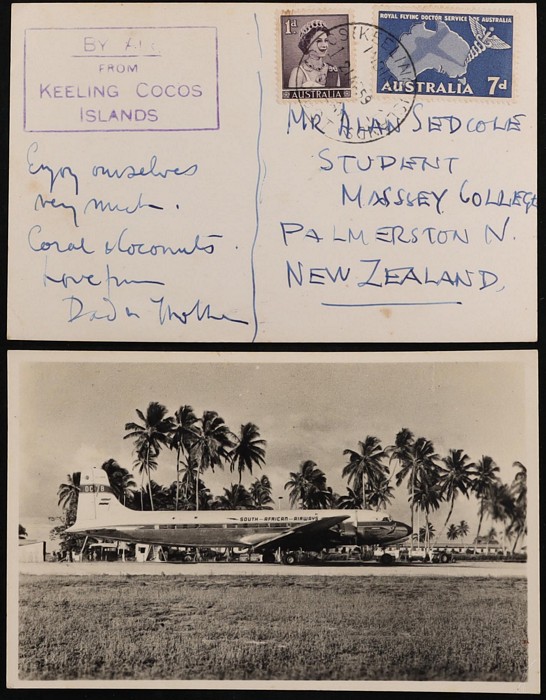 BY AIR
FROM
KEELING COCOS
ISLANDS
1d
AUSTRALIA
ROYAL FLYING DOCTOR SERVICE OF AUSTRALIA
AUSTRALIA 7d
Enjoy ourselves
very much.
Coral & Coconuts.
Love from
Dad & Mother
MR ALAN SEDCOLE
STUDENT
MASSSEY COLLEGE
PALMERSTON N.
NEW ZEALAND.
DC-7B
SOUTH AFRICAN AIRWAYS